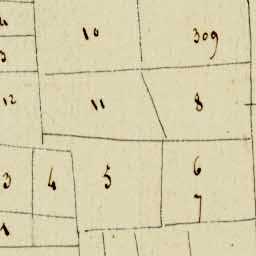 10 309
12 11 8
3 4 5 6
7